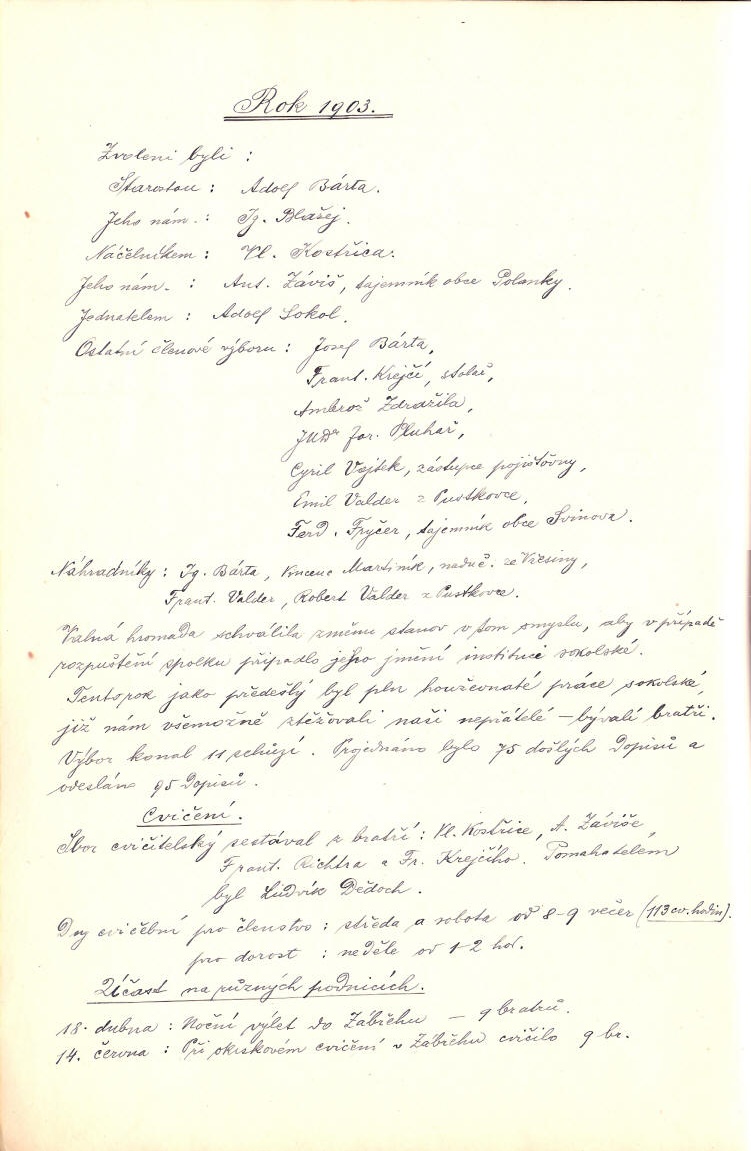 Rok 1903.
Zvoleni byli :
Starostou : Adolf Bárta.
Jeho nám. : Ig. Blažej.
Náčelníkem : Vl. Kostřica.
Jeho nám. : Ant. Záviš, tajemník obce Polanky.
Jednatelem : Adolf Sokol.
Ostatní členové výboru : Josef Bárta,
Frant. Krejčí, stolař,
Ambrož Zdražila,
JUDr Jar. Pluhař,
Cyril Vojtek, zástupce pojišťovny,
Emil Valder z Pustkovce,
Ferd. Fryčer, tajemník obce Svinova.
Náhradníky : Ig. Bárta, Vincenc Martiník, naduč. ze Křesiny,
Frant. Valder, Robert Valder z Pustkovce.
Valná hromada schválila změnu stanov v tom smyslu, aby v případě
rozpuštění spolku připadlo jeho jmění instituci sokolské.
Tento rok jako předešlý byl pln houževnaté práce sokolské,
již nám všemožně ztěžovali naši nepřátelé – bývalí bratři.
Výbor konal 11 schůzí. Projednáno bylo 75 došlých dopisů a
odesláno 95 dopisů.
Cvičení.
Sbor cvičitelský sestával z bratří : Vl. Kostřice, A. Záviše,
Frant. Richtra a Fr. Krejčího. Pomahatelem
byl Ludvík Dědoch.
Dny cvičební pro členstvo : středa a sobota od 8-9 večer (113 cv. hodin).
pro dorost : neděle od 1-2 hod.
Účast na různých podnicích.
18. dubna : Noční výlet do Zábřehu – 9 bratrů.
14. června : Při okrskovém cvičení v Zábřehu cvičilo 9 br.